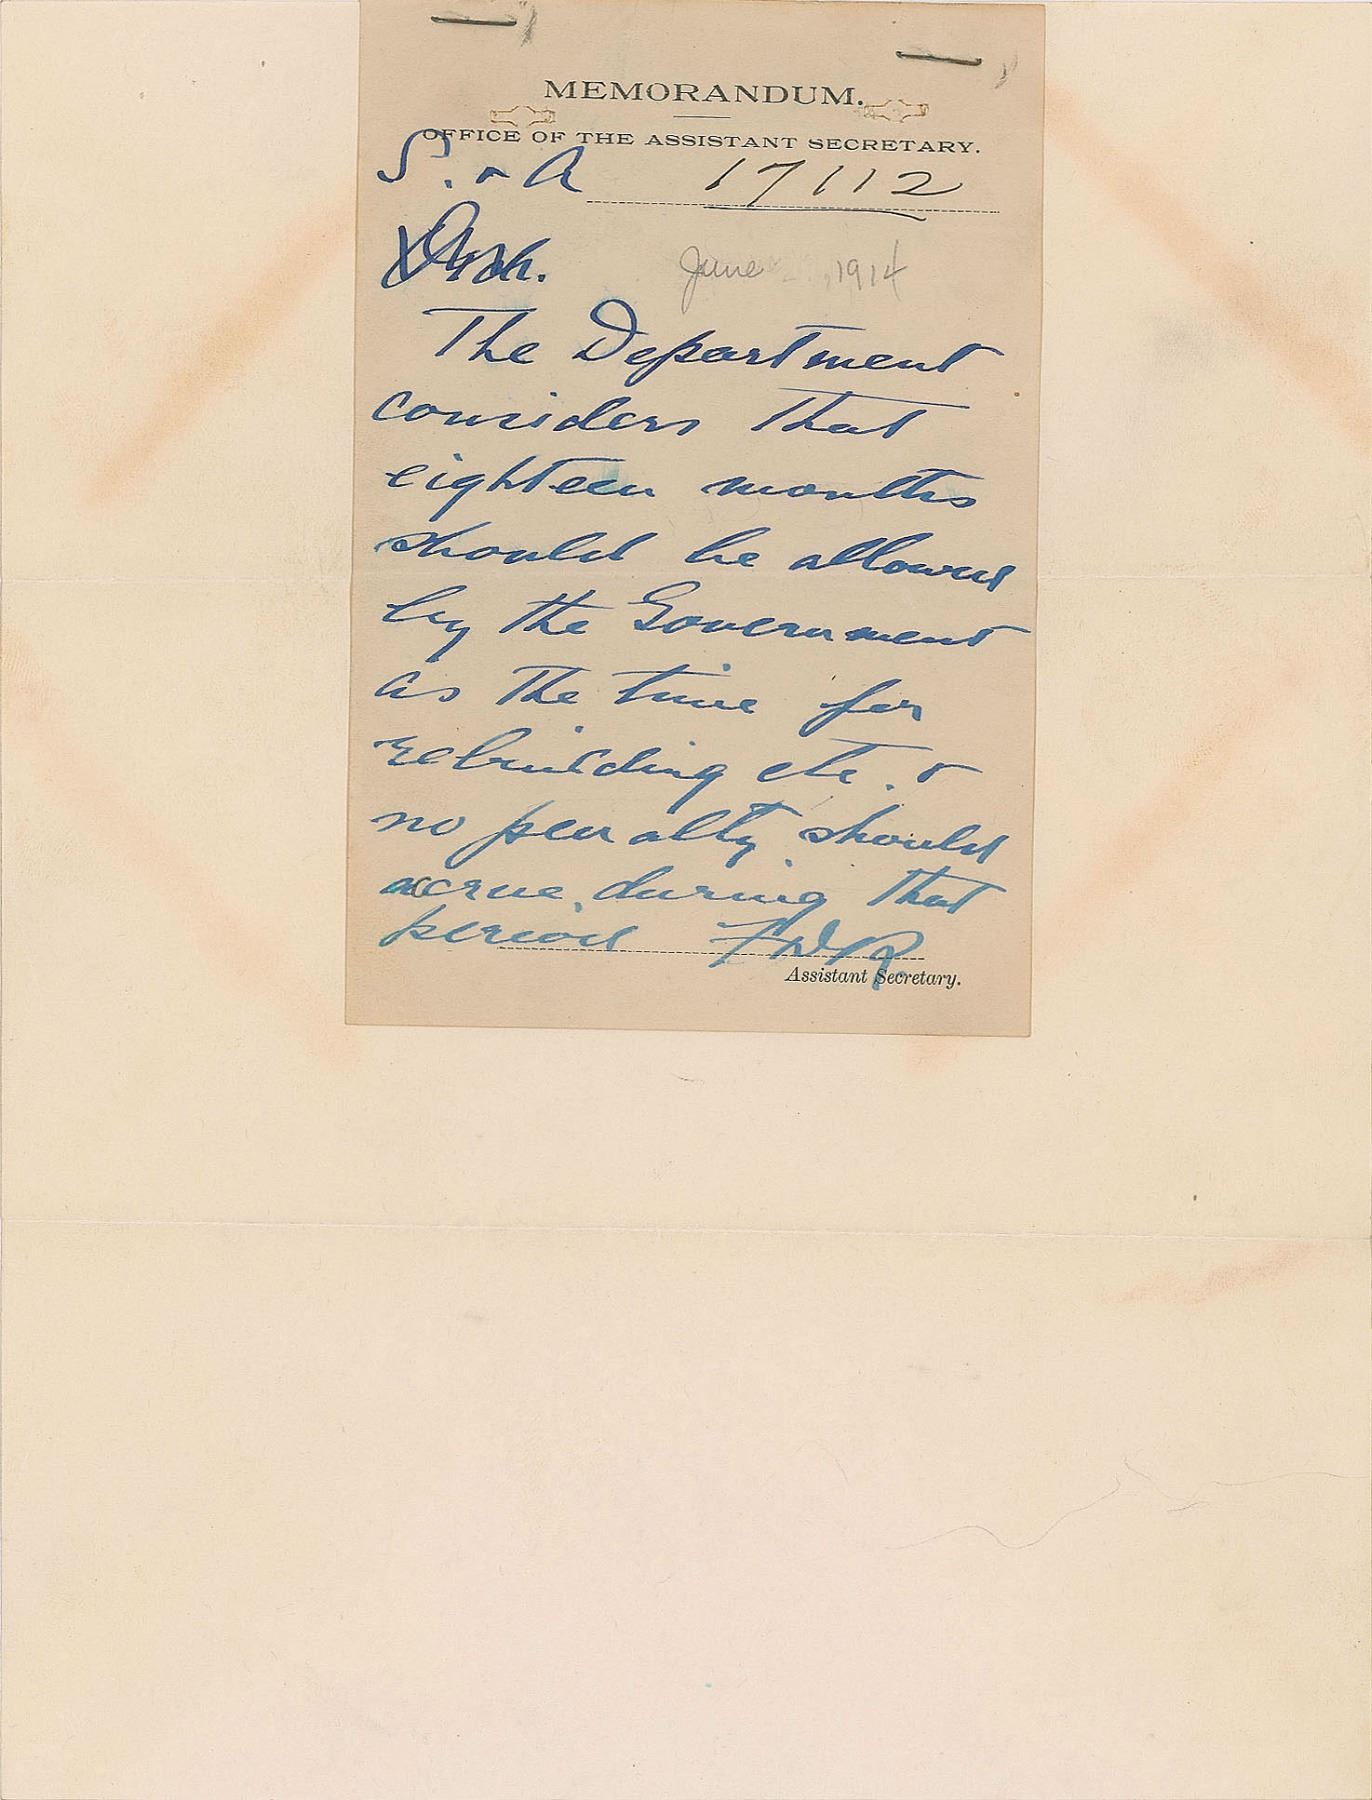 MEMORANDUM.
OFFICE OF THE ASSISTANT SECRETARY.
S. & A 17112
June 1914
The Department
considers that
eighteen months
should be allowed
by the Government
as the time for
rebuilding etc. &
no penalty should
accrue during that
period FDR
Assistant Secretary.